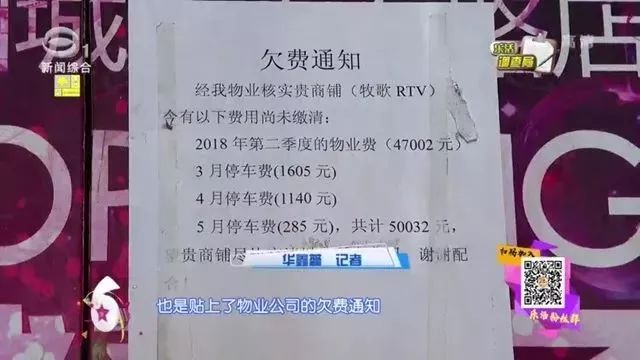 1
新闻综合
乐活
调查局
高清
欠费通知
经我物业核实贵商铺（牧歌 RTV）
含有以下费用尚未缴清：
2018 年第二季度的物业费（47002 元）
3 月停车费(1605 元)
4 月停车费(1140 元)
5 月停车费(285 元)，共计 50032 元，
贵商铺尽 谢谢配
华鑫 记者
扫码加入
乐活粉丝群
6
也是贴上了物业公司的欠费通知